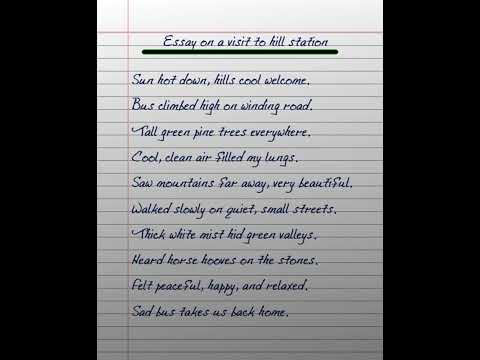 Essay on a visit to hill station
Sun hot down, hills cool welcome.
Bus climbed high on winding road.
Tall green pine trees everywhere.
Cool, clean air filled my lungs.
Saw mountains far away, very beautiful.
Walked slowly on quiet, small streets.
Thick white mist hid green valleys.
Heard horse hooves on the stones.
Felt peaceful, happy, and relaxed.
Sad bus takes us back home.